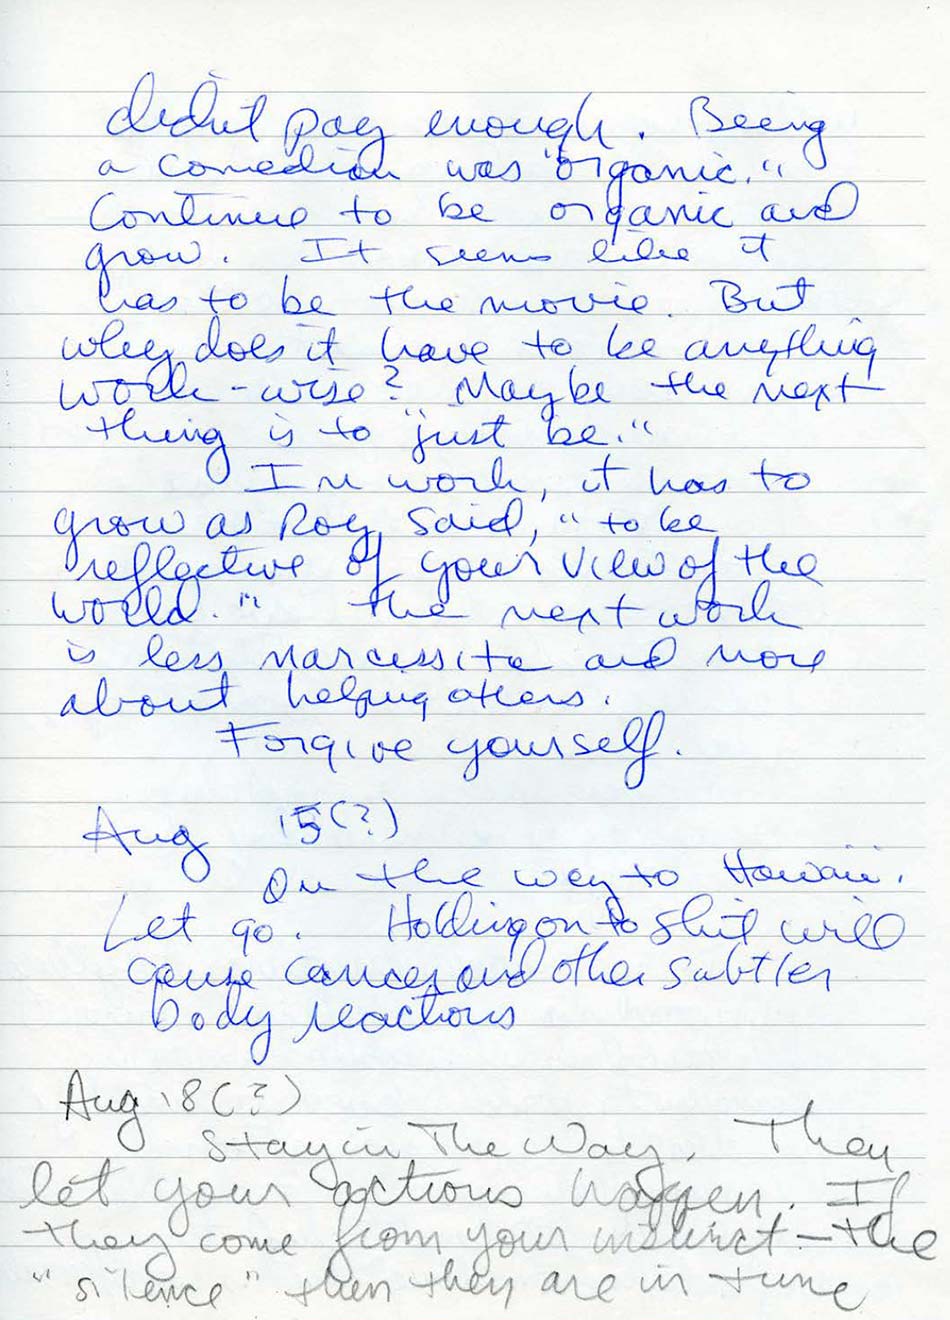 didn't pay enough. Being
a comedian was "organic."
Continue to be organic and
grow. It seems like it
has to be the movie. But
why does it have to be anything
work-wise? Maybe the next
thing is to "just be."
In work, it has to
grow as Roy said, "to be
reflective of your view of the
world." The next work
is less narcissitic and more
about helping others.
Forgive yourself.
Aug 15(?)
On the way to Hawaii.
Let go. Holding on to shit will
cause cancer and other subtler
body reactions
Aug 18(?)
Stay in The Way. Then
let your actions happen. If
they come from your instinct – the
"silence" then they are in tune